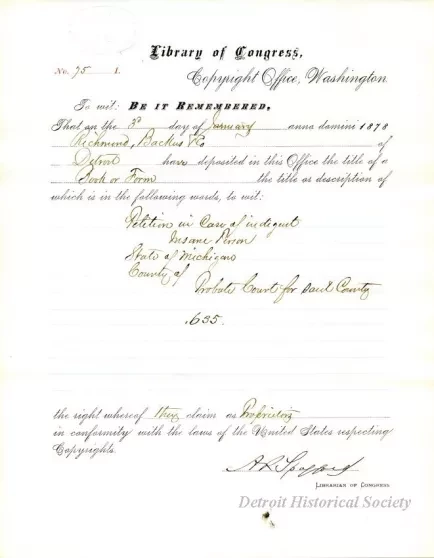 Library of Congress,
No. 75 I.
Copyright Office, Washington
To wit: BE IT REMEMBERED,
That on the 3d day of January anno domini 1878
Richmond, Backus & Co of
Detroit have deposited in this Office the title of a
Book or Form the title or description of
which is in the following words, to wit:
Petition in Case of indigent
Insane Person
State of Michigan
County of
Probate Court for said County
.635.
the right whereof they claim as Proprietors
in conformity with the laws of the United States respecting
Copyrights.
A R Spofford
LIBRARIAN OF CONGRESS
Detroit Historical Society